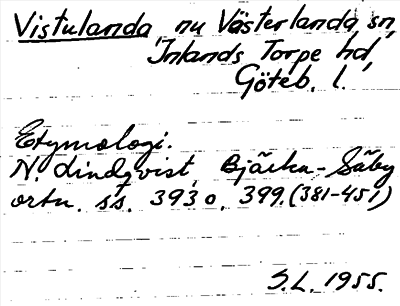 Vistulanda, nu Västerlanda sn,
Inlands Torpe hd,
Göteb. l.
Etymologi.
N. Lindqvist, Bjärka-Säby
ortn. ss. 393 o. 399. (381-451)
S.L. 1955.